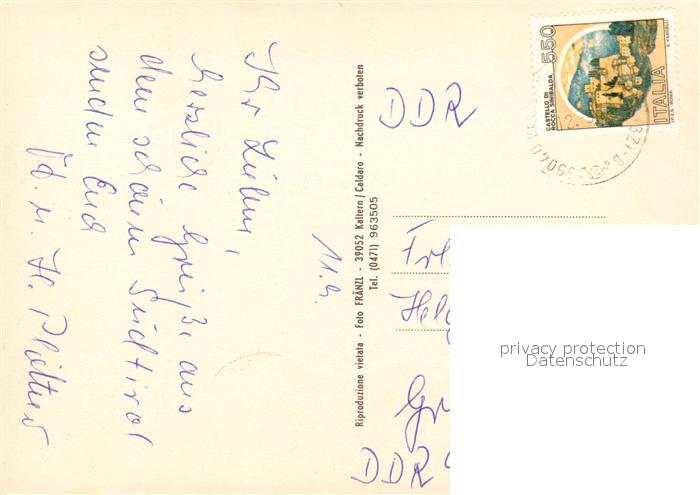 Ihr Lieben,
herzliche Grüße aus
dem schönen Südtirol
senden Euch
u. H. Plattner
11.9.
Riproduzione vietata - Foto FRÄNZL - 39052 Kaltern/Caldaro - Nachdruck verboten
Tel. (0471) 963505
DDR
CASTELLO DI
ROCCA SINIBALDA
550
ITALIA
I.P.Z.S. ROMA
E. VANGELLI
39040
Frl.
Hel
Gr
DDR
privacy protection
Datenschutz